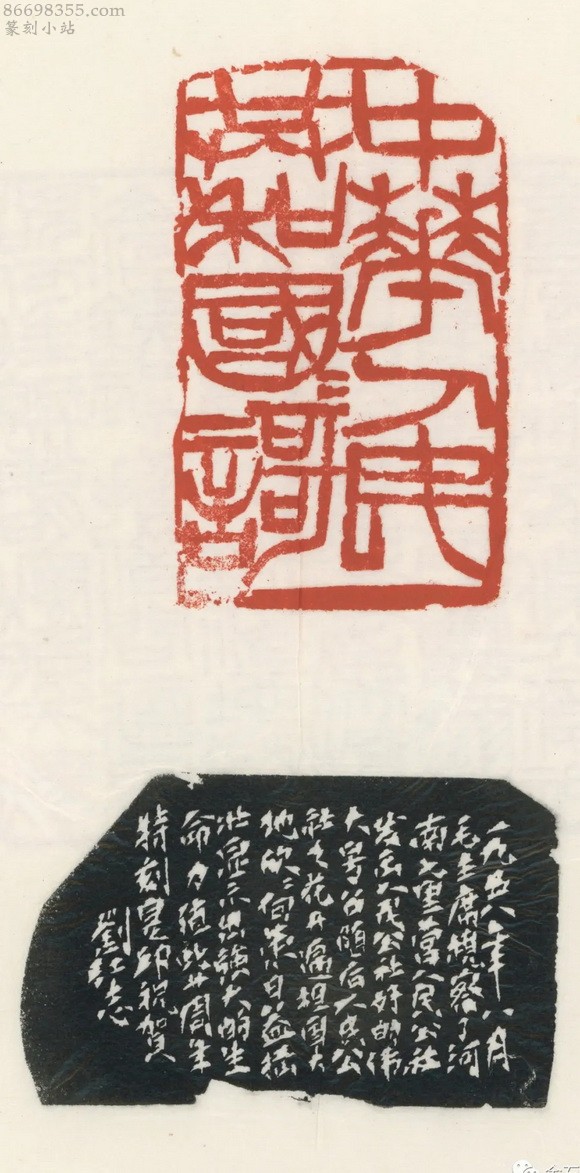 86698355.com
篆刻小站
中華人民
共和國謌
一九五八年八月
毛主席視察了河
南七里营人民公社
发出人民公社好的伟
大号召随后人民公
社之花开遍祖国大
地欣〻向荣日益茁
壮显示出强大的生
命力值此廿周年
特刻是印祝賀
劉江志